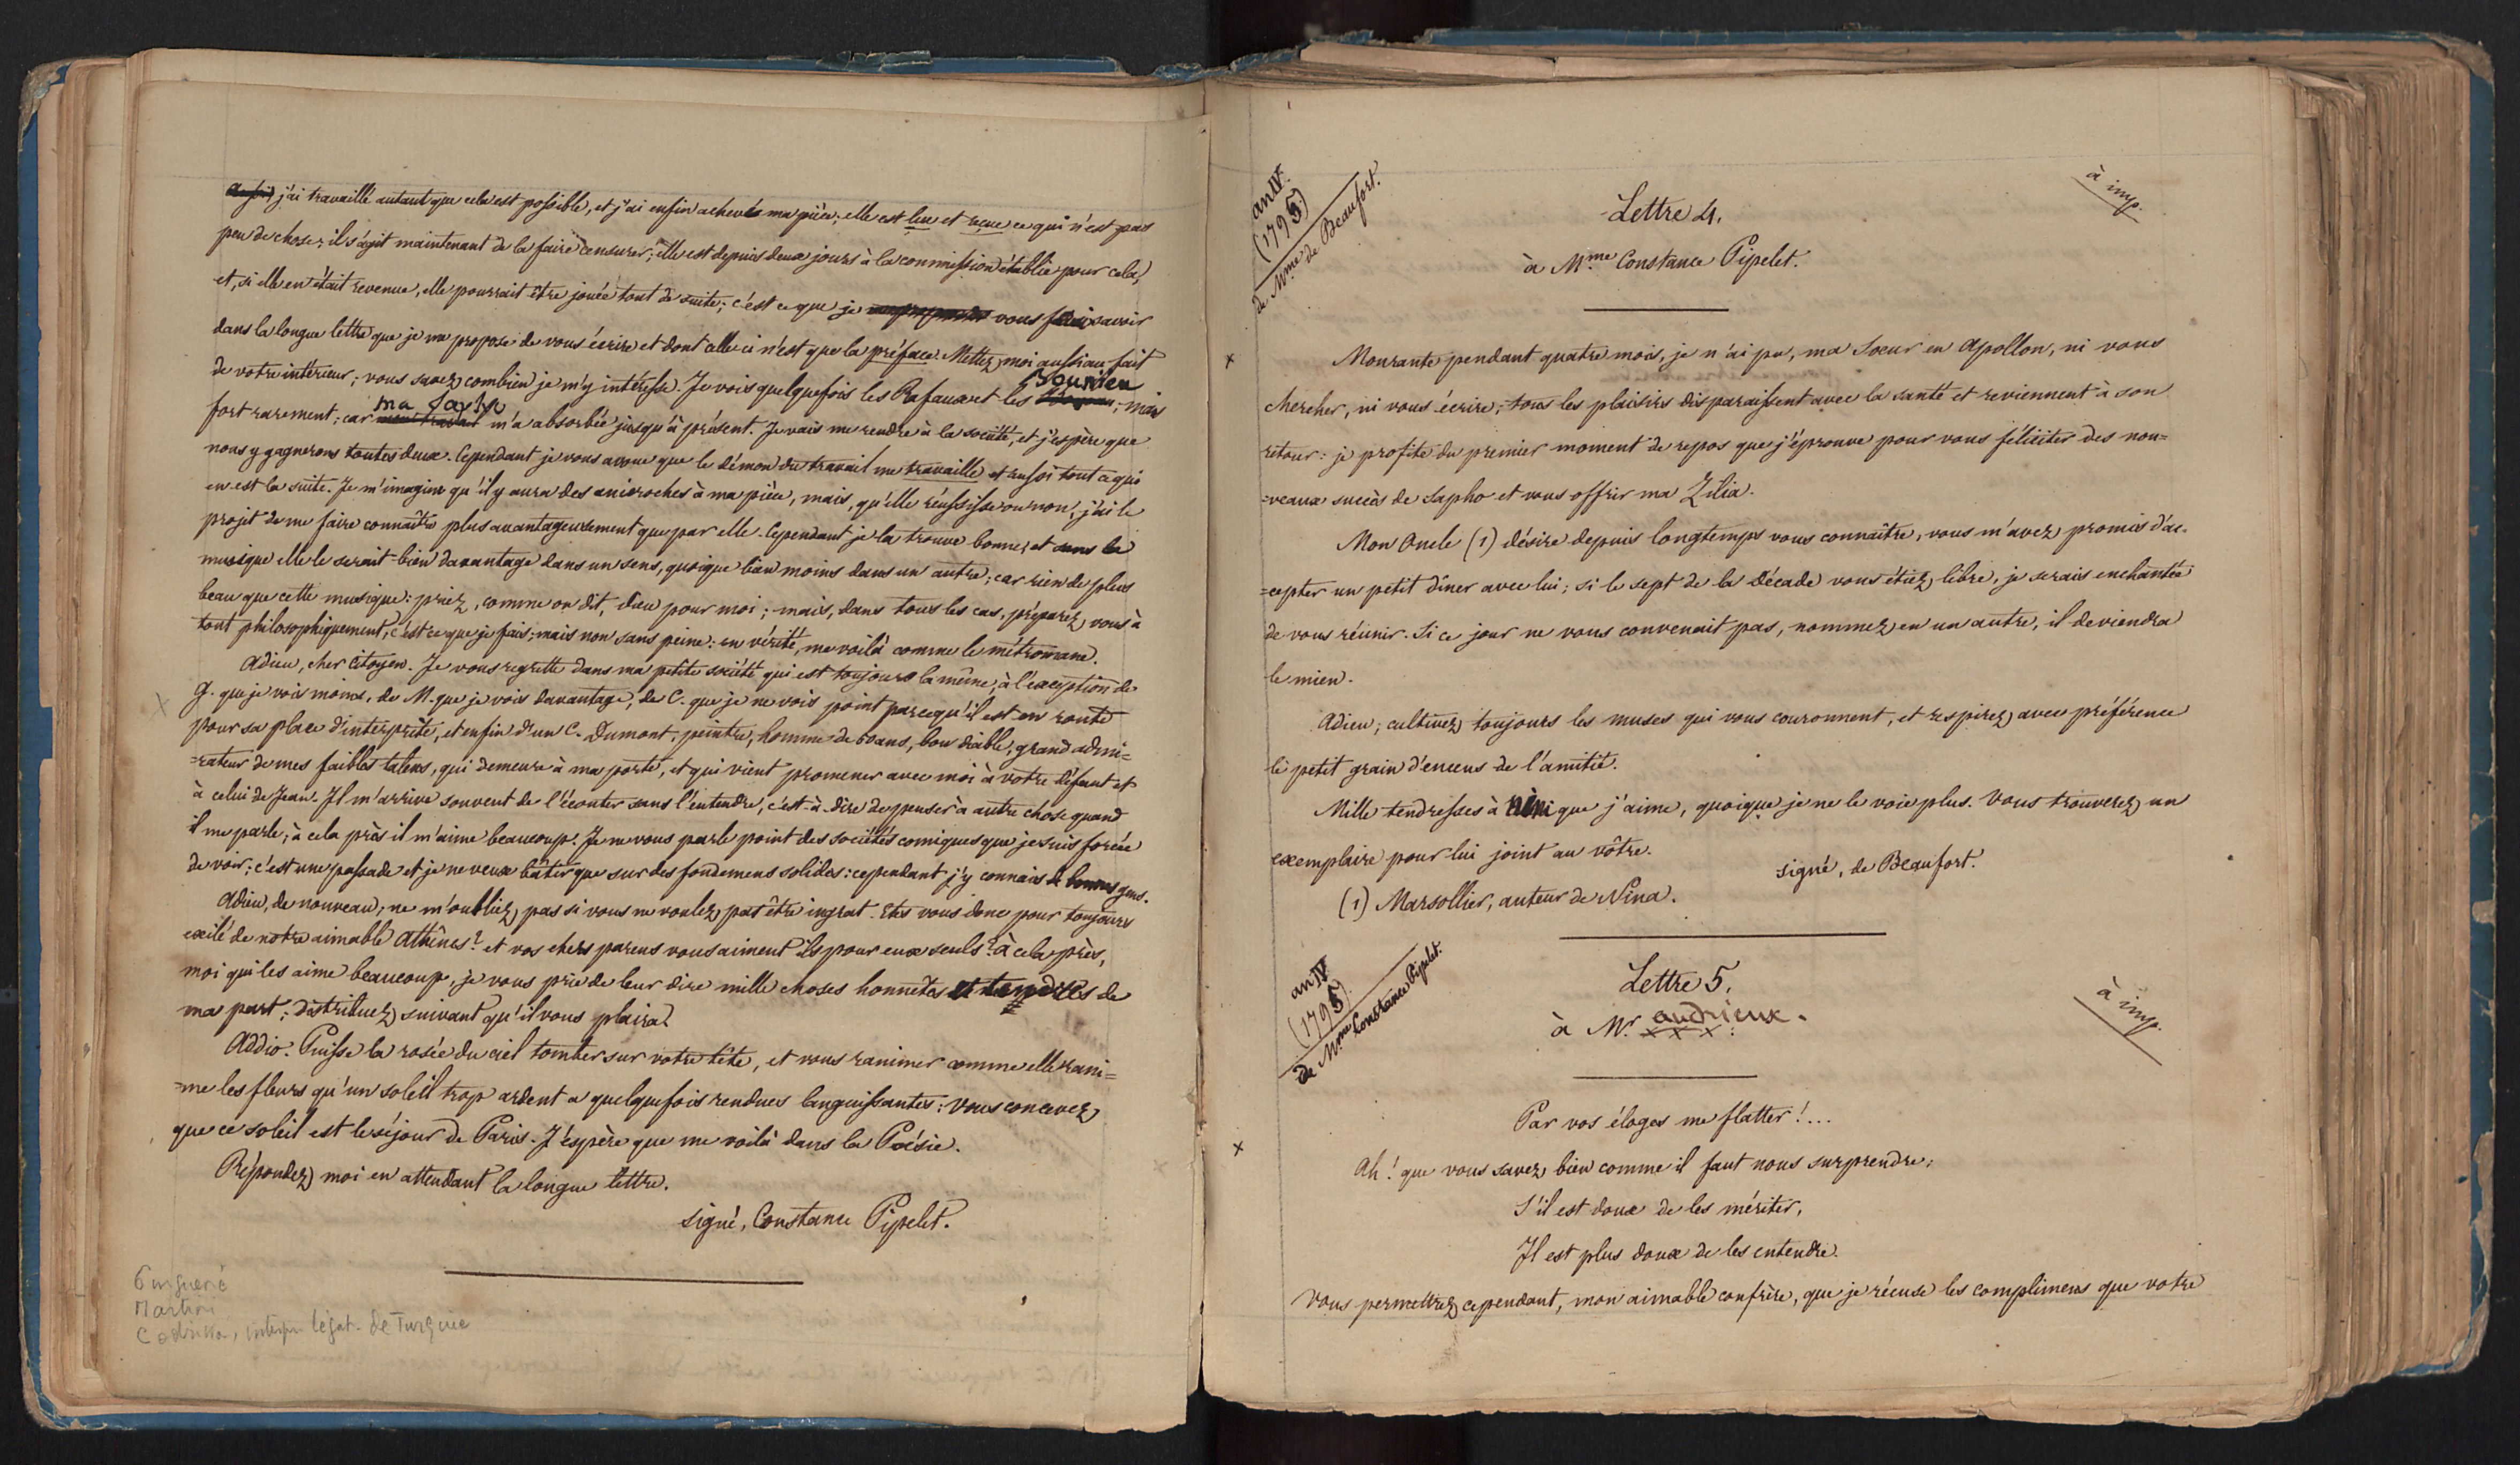 j'ai travaillé autant que cela est possible, et j'ai enfin achevé ma pièce; elle est lue et reçue ce qui n'est pas
peu de chose; il s'agit maintenant de la faire censurer; elle est depuis deux jours à la commission établie pour cela,
et, si elle en était revenue, elle pourrait être jouée tout de suite; c'est ce que je vous ferai savoir
dans la longue lettre que je me propose de vous écrire et dont celle ci n'est que la préface. Mettez moi aussi au fait
de votre intérieur; vous savez combien je m'y intéresse. Je vois quelquefois les Rafaux et les Sounieu; mais
fort rarement; car ma Sapho m'a absorbée jusqu'à présent. Je vais me rendre à la société, et j'espère que
nous y gagnerons toutes deux. Cependant je vous avoue que le démon du travail me travaille et aussi tout ce qui
en est la suite. Je m'imagine qu'il y aura des anicroches à ma pièce, mais, qu'elle réussisse ou non, j'ai le
projet de me faire connaître plus avantageusement que par elle. Cependant je la trouve bonne, et sans la
musique elle le serait bien davantage dans un sens, quoique bien moins dans un autre; car rien de plus
beau que cette musique: priez, comme on dit, dieu pour moi; mais, dans tous les cas, préparez vous à
tout philosophiquement, c'est ce que je fais; mais non sans peine: en vérité, me voilà comme le métromane.
Adieu, cher Citoyen. Je vous regrette dans ma petite société qui est toujours la même, à l'exception de
G. que je vois moins, de M. que je vois davantage, de C. que je ne vois point parcequ'il est en route
pour sa place d'interprète, et enfin d'un C. Dumont, peintre, homme de 60 ans, bon diable, grand admi=
=rateur de mes faibles talens, qui demeure à ma porte, et qui vient promener avec moi à votre défaut et
à celui de Jean. Il m'arrive souvent de l'écouter sans l'entendre, c'est-à-dire de penser à autre chose quand
il me parle; à cela près il m'aime beaucoup. Je ne vous parle point des sociétés comiques que je suis forcée
de voir; c'est une passade et je ne veux bâtir que sur des fondemens solides: cependant j'y connais de bonnes gens.
Adieu, de nouveau; ne m'oubliez pas si vous ne voulez pas être ingrat. Etes vous donc pour toujours
exilé de notre aimable Athènes? et vos chers parens vous aiment ils pour eux seuls? à cela près,
moi qui les aime beaucoup, je vous prie de leur dire mille choses honnêtes et tendres de
ma part; distribuez suivant qu'il vous plaira.
Addio. Puisse la rosée du ciel tomber sur votre tête, et vous ranimer comme elle rani=
=me les fleurs qu'un soleil trop ardent a quelquefois rendues languissantes: vous concevez
que ce soleil est le séjour de Paris. J'espère que me voilà dans la Poésie.
Répondez moi en attendant la longue lettre.
signé, Constance Pipelet.
Martini
interpr. légat. de Turquie
an IV.
(1795)
de Mme de Beaufort.
à imp.
Lettre 4.
à Mme Constance Pipelet.
Mourante pendant quatre mois, je n'ai pu, ma Soeur en Apollon, ni vous
chercher, ni vous écrire; tous les plaisirs disparaissent avec la santé et reviennent à son
retour: je profite du premier moment de repos que j'éprouve pour vous féliciter des nou=
=veaux succès de Sapho et vous offrir ma Zilia.
Mon Oncle (1) désire depuis longtemps vous connaître, vous m'avez promis d'ac=
=cepter un petit dîner avec lui; si le sept de la décade vous étiez libre, je serais enchantée
de vous réunir. Si ce jour ne vous convenait pas, nommez en un autre, il deviendra
le mien.
Adieu; cultivez toujours les muses qui vous couronnent, et respirez avec préférence
le petit grain d'encens de l'amitié.
Mille tendresses à que j'aime, quoique je ne le voie plus. Vous trouverez un
exemplaire pour lui joint au vôtre.
signé, de Beaufort.
(1) Marsollier, auteur de Nina.
an IV
(1795)
de Mme Constance Pipelet.
à imp.
Lettre 5.
à Mr. andrieux.
x x x
Par vos éloges me flatter!...
Ah! que vous savez bien comme il faut nous surprendre;
S'il est doux de les mériter,
Il est plus doux de les entendre.
Vous permettrez cependant, mon aimable confrère, que je récuse les complimens que votre